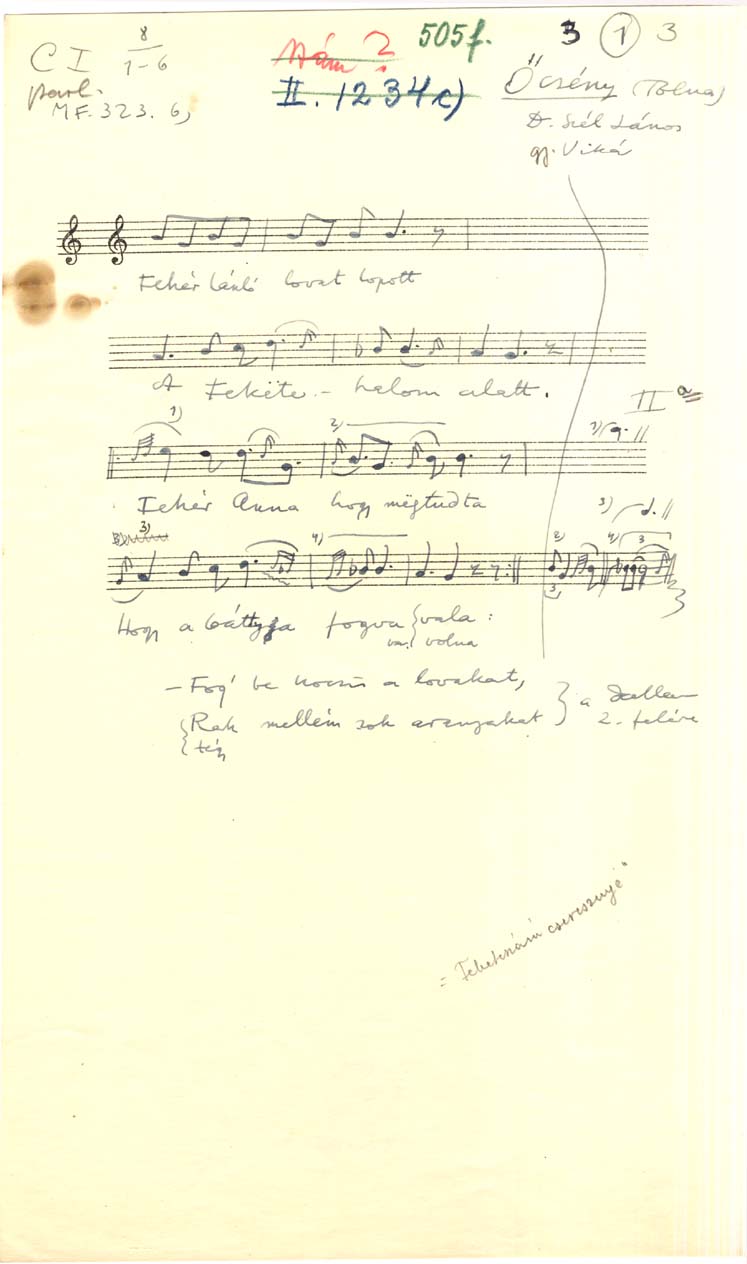 C I 8/1-6
parl.
MF. 323. 6,
Szám?
505f.
II. 1234c)
3 1 3
Őcsény (Tolna)
D. Szél János
gy. Vikár
Fehér László lovat lopott
A Fekëte - halom alatt.
II a
1)
2)
1)
Fehér Anna hogy mëgtudta
3)
3)
4)
2)
4)
3
3
Hogy a báttyja fogva vala :
va. volna
- Fog' be kocsis a lovakat,
Rak mellém sok aranyakat
tég
a dallam
2. felére
= "Fehérszárú cseresznye"